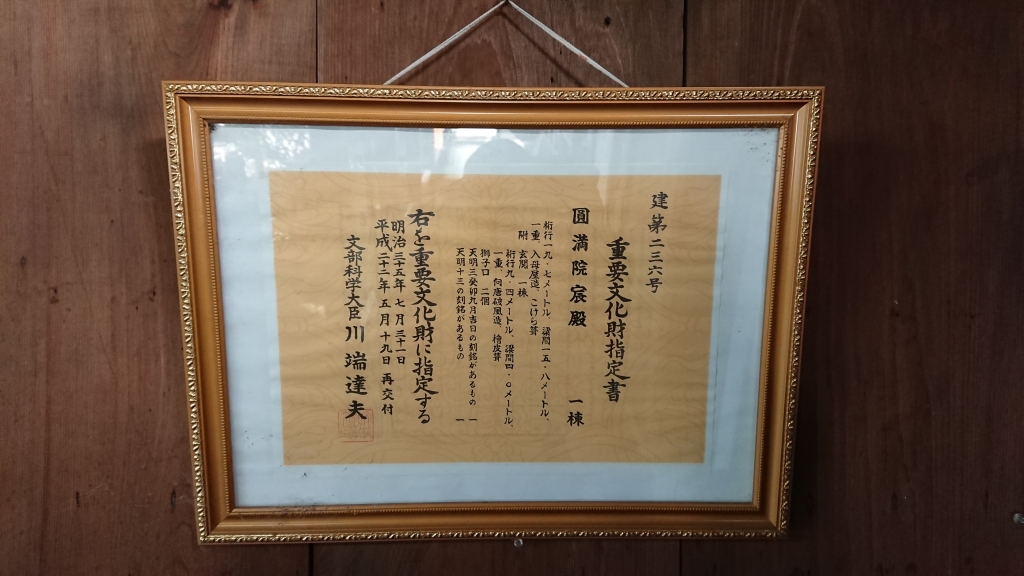 建第二三六号
重要文化財指定書
圓満院宸殿 一棟
桁行一九・七メートル、梁間一五・八メートル、
一重、入母屋造、こけら葺
附 玄関 一棟
桁行九・四メートル、梁間四・〇メートル、
一重、向唐破風造、檜皮葺
獅子口 二個
天明三癸卯九月吉日の刻銘があるもの 一
天明十三の刻銘があるもの 一
右を重要文化財に指定する
明治三十五年七月三十一日
平成二十二年五月十九日 再交付
文部科学大臣 川端達夫